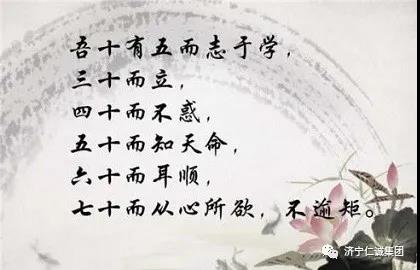 吾十有五而志于学，
三十而立，
四十而不惑，
五十而知天命，
六十而耳顺，
七十而从心所欲，不逾矩。
济宁仁诚集团